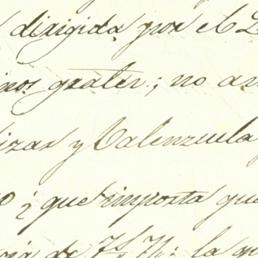 dirigida por el
grater; no a
izar y Valenzuela
o ¿ que importa que
de
la